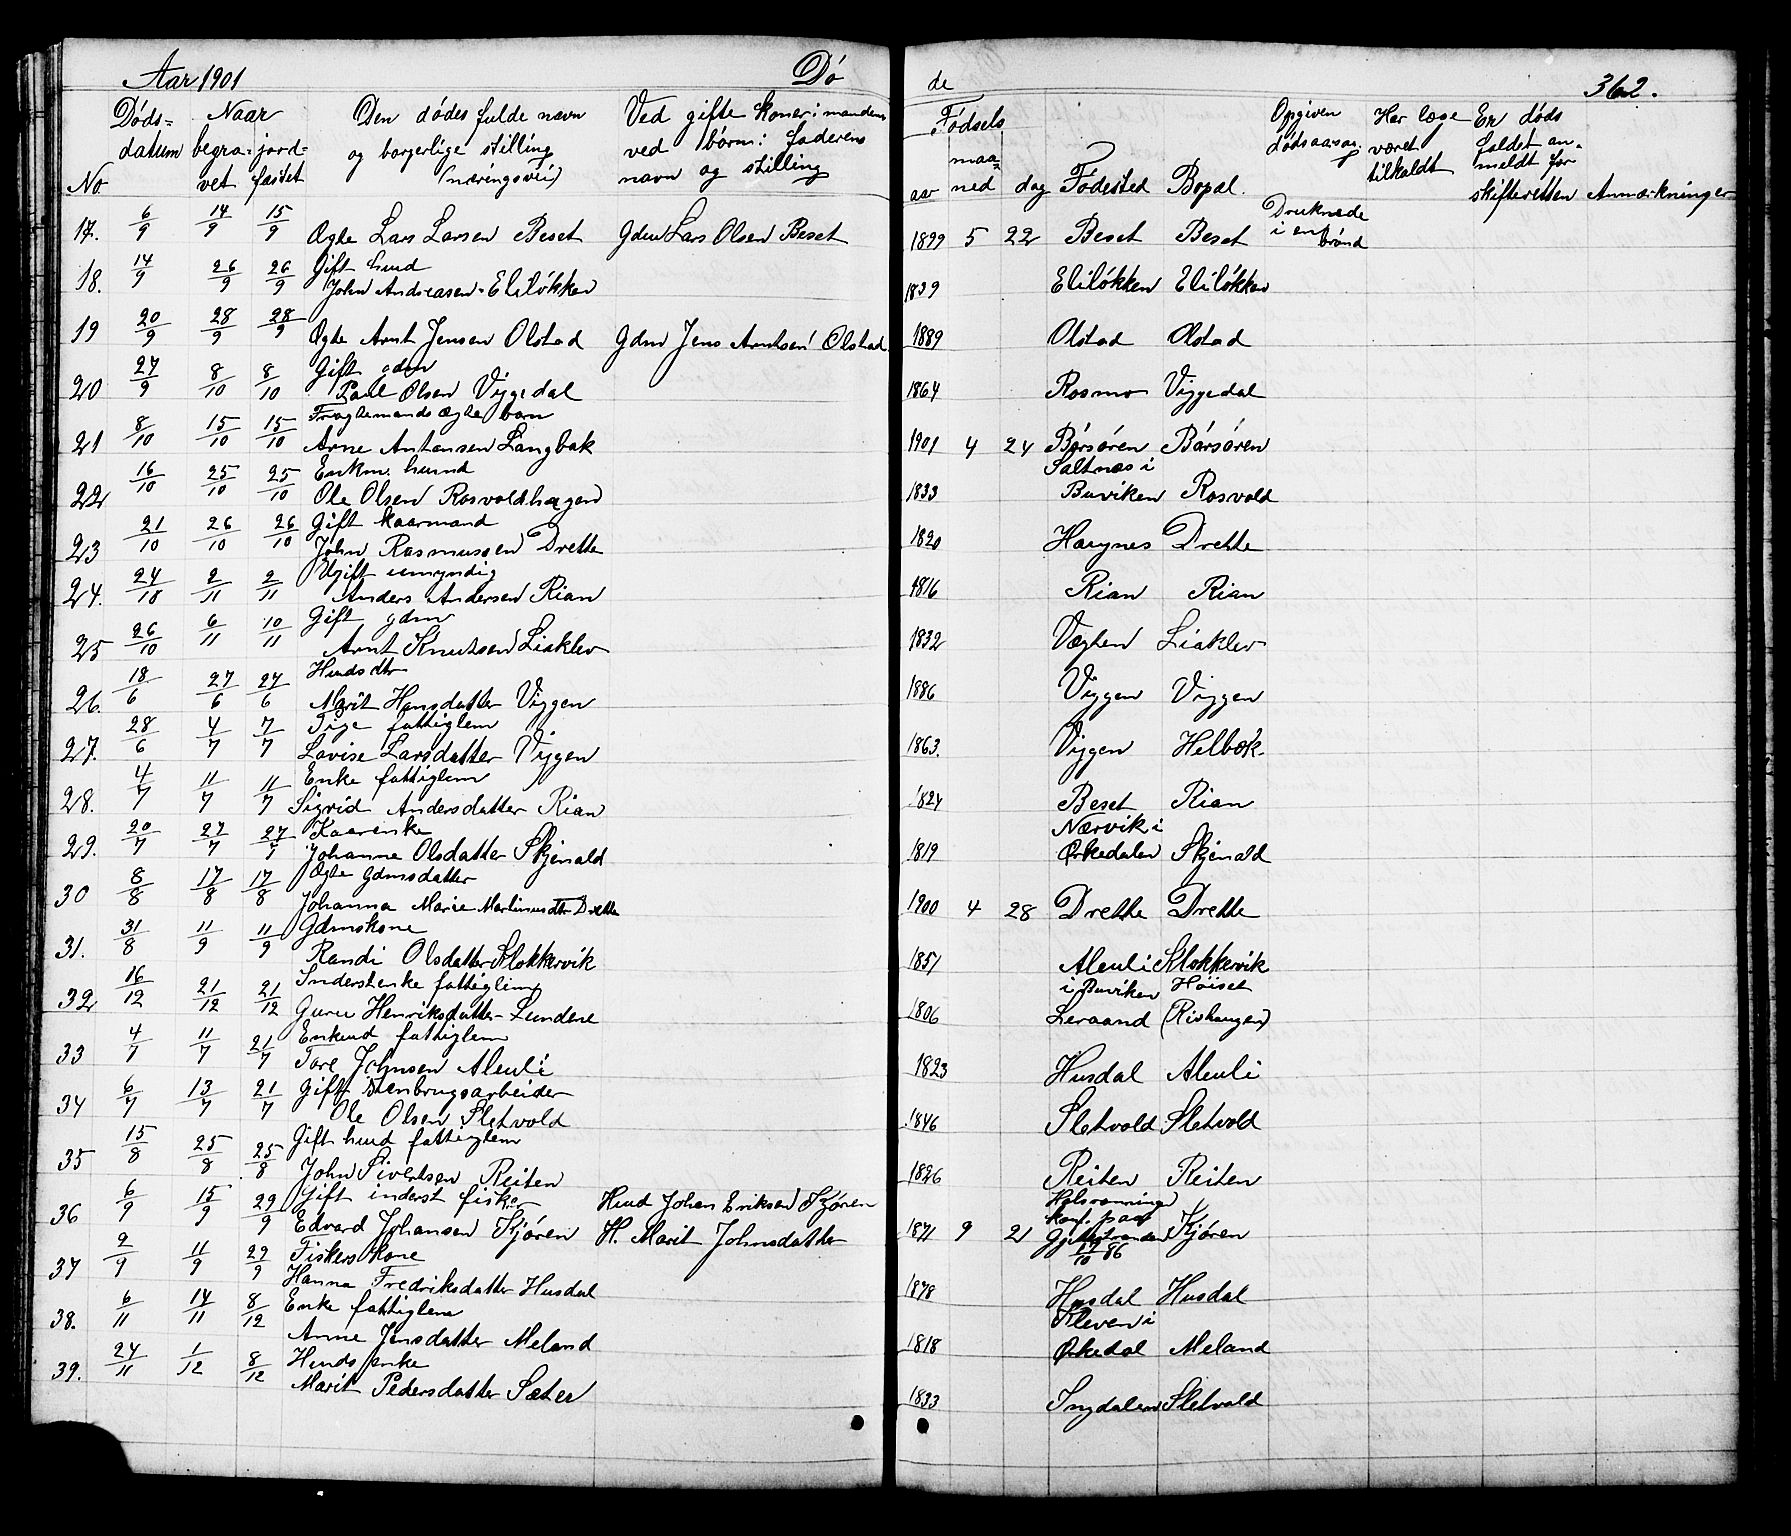 Aar 1901 Dó de 362.
Døds= Naar Den dódes fulde navn Ved gifte koner: mandens Fødsels Opgiven Har læge Er døds
datum begra= jord= og borgerlige stilling ved børn: faderens dødsaarsag været faldet an-
No vet fæstet (næringsvei) navn og stilling aar maaned dag Fødested Bopæl. tilkaldt meldt for
skifteretten Anmærkninger
17. 6/9 14/9 15/9 Ægte Lars Larsen Beset Gdm Lars Olsen Beset 1899 5 22 Beset Beset Druknede i en brønd
18. 14/9 26/9 26/9 Gift husd
John Andreasen Eliløkken 1839 Eliløkken Eliløkken
19 20/9 28/9 28/9 Ægte Arnt Jensen Olstad Gdm Jens Arntsen Olstad 1889 Olstad Olstad
20 27/9 8/10 8/10 Gift gdm
Paul Olsen Viggedal 1864 Rosmo Viggedal
21 8/10 15/10 15/10 Fraglemands Ægte barn
Arne Antonsen Langbak 1901 4 24 Børsøren Børsøren
22 16/10 25/10 25/10 Enkm. husmd
Ole Olsen Rosvoldhagen 1833 Saltnes i Buviken Rosvold
23 21/10 26/10 26/10 Gift kaarmand
John Rasmussen Drette 1820 Hauynes Drette
24. 24/10 2/11 2/11 Ugift umyndig
Anders Andersen Rian 1816 Rian Rian
25 26/10 6/11 10/11 Gift gdm
Arnt Knutsen Liaklev 1832 Vægten Liaklev
26. 18/6 27/6 27/6 Husds dtr
Marit Hansdatter Viggen 1886 Viggen Viggen
27. 28/6 4/7 7/7 Pige fattiglem
Lovise Larsdatter Viggen 1863. Viggen Helbæk.
28. 4/7 11/7 11/7 Enke fattiglem
Sigrid Andersdatter Rian 1824 Beset Rian
29. 20/7 27/7 27/7 Kaarenke
Johanne Olsdatter Skjenald 1819 Nærvik i Orkedalen Skjenald
30 8/8 17/8 17/8 Ægte gdmsdatter
Johanna Marie Martinusdtr Drette 1900 4 28 Drette Drette
31. 31/8 11/9 11/9 Gdmskone
Randi Olsdatter Stokkervik 1851 Aleuli i Buviken Stokkervik
32 16/12 21/12 21/12 Inderstenke fattiglem
Guru Henriksdatter Lundene 1806 Leraand Høiset (Rishaugen)
33 4/7 11/7 21/7 Enkemd fattiglem
Tore Johnsen Aleuli 1823 Husdal Aleuli
34 6/7 13/7 21/7 Gift stenbrugsarbeider
Ole Olsen Sletvold 1846 Sletvold Sletvold
35 15/8 25/8 25/8 Gift husd fattiglem
John Sivertsen Reiten 1826 Reiten Reiten
36 6/9 15/9 29/9 Gift inderst fisker Husd Johan Eriksen Kjøren
Edvard Johansen Kjøren H. Marit Johnsdatter 1871 9 21 konf. paa 86 Kjøren
37 2/9 11/9 29/9 Fiskers kone
Hanna Fredriksdatter Husdal 1878 Husdal Husdal
38. 6/11 14/11 8/12 Enke fattiglem
Anne Jensdatter Meland 1818 Kleven i Orkedal Meland
39. 24/11 1/12 8/12 Husds enke
Marit Pedersdatter Sæter 1833 Ingdalen Sletvold